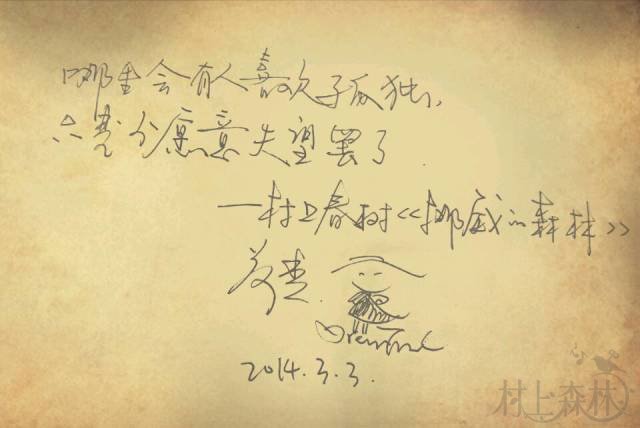 哪里会有人喜欢孤独,
愿意失望罢了.
—村上春树《挪威的森林》
2014.3.3.
村上森林